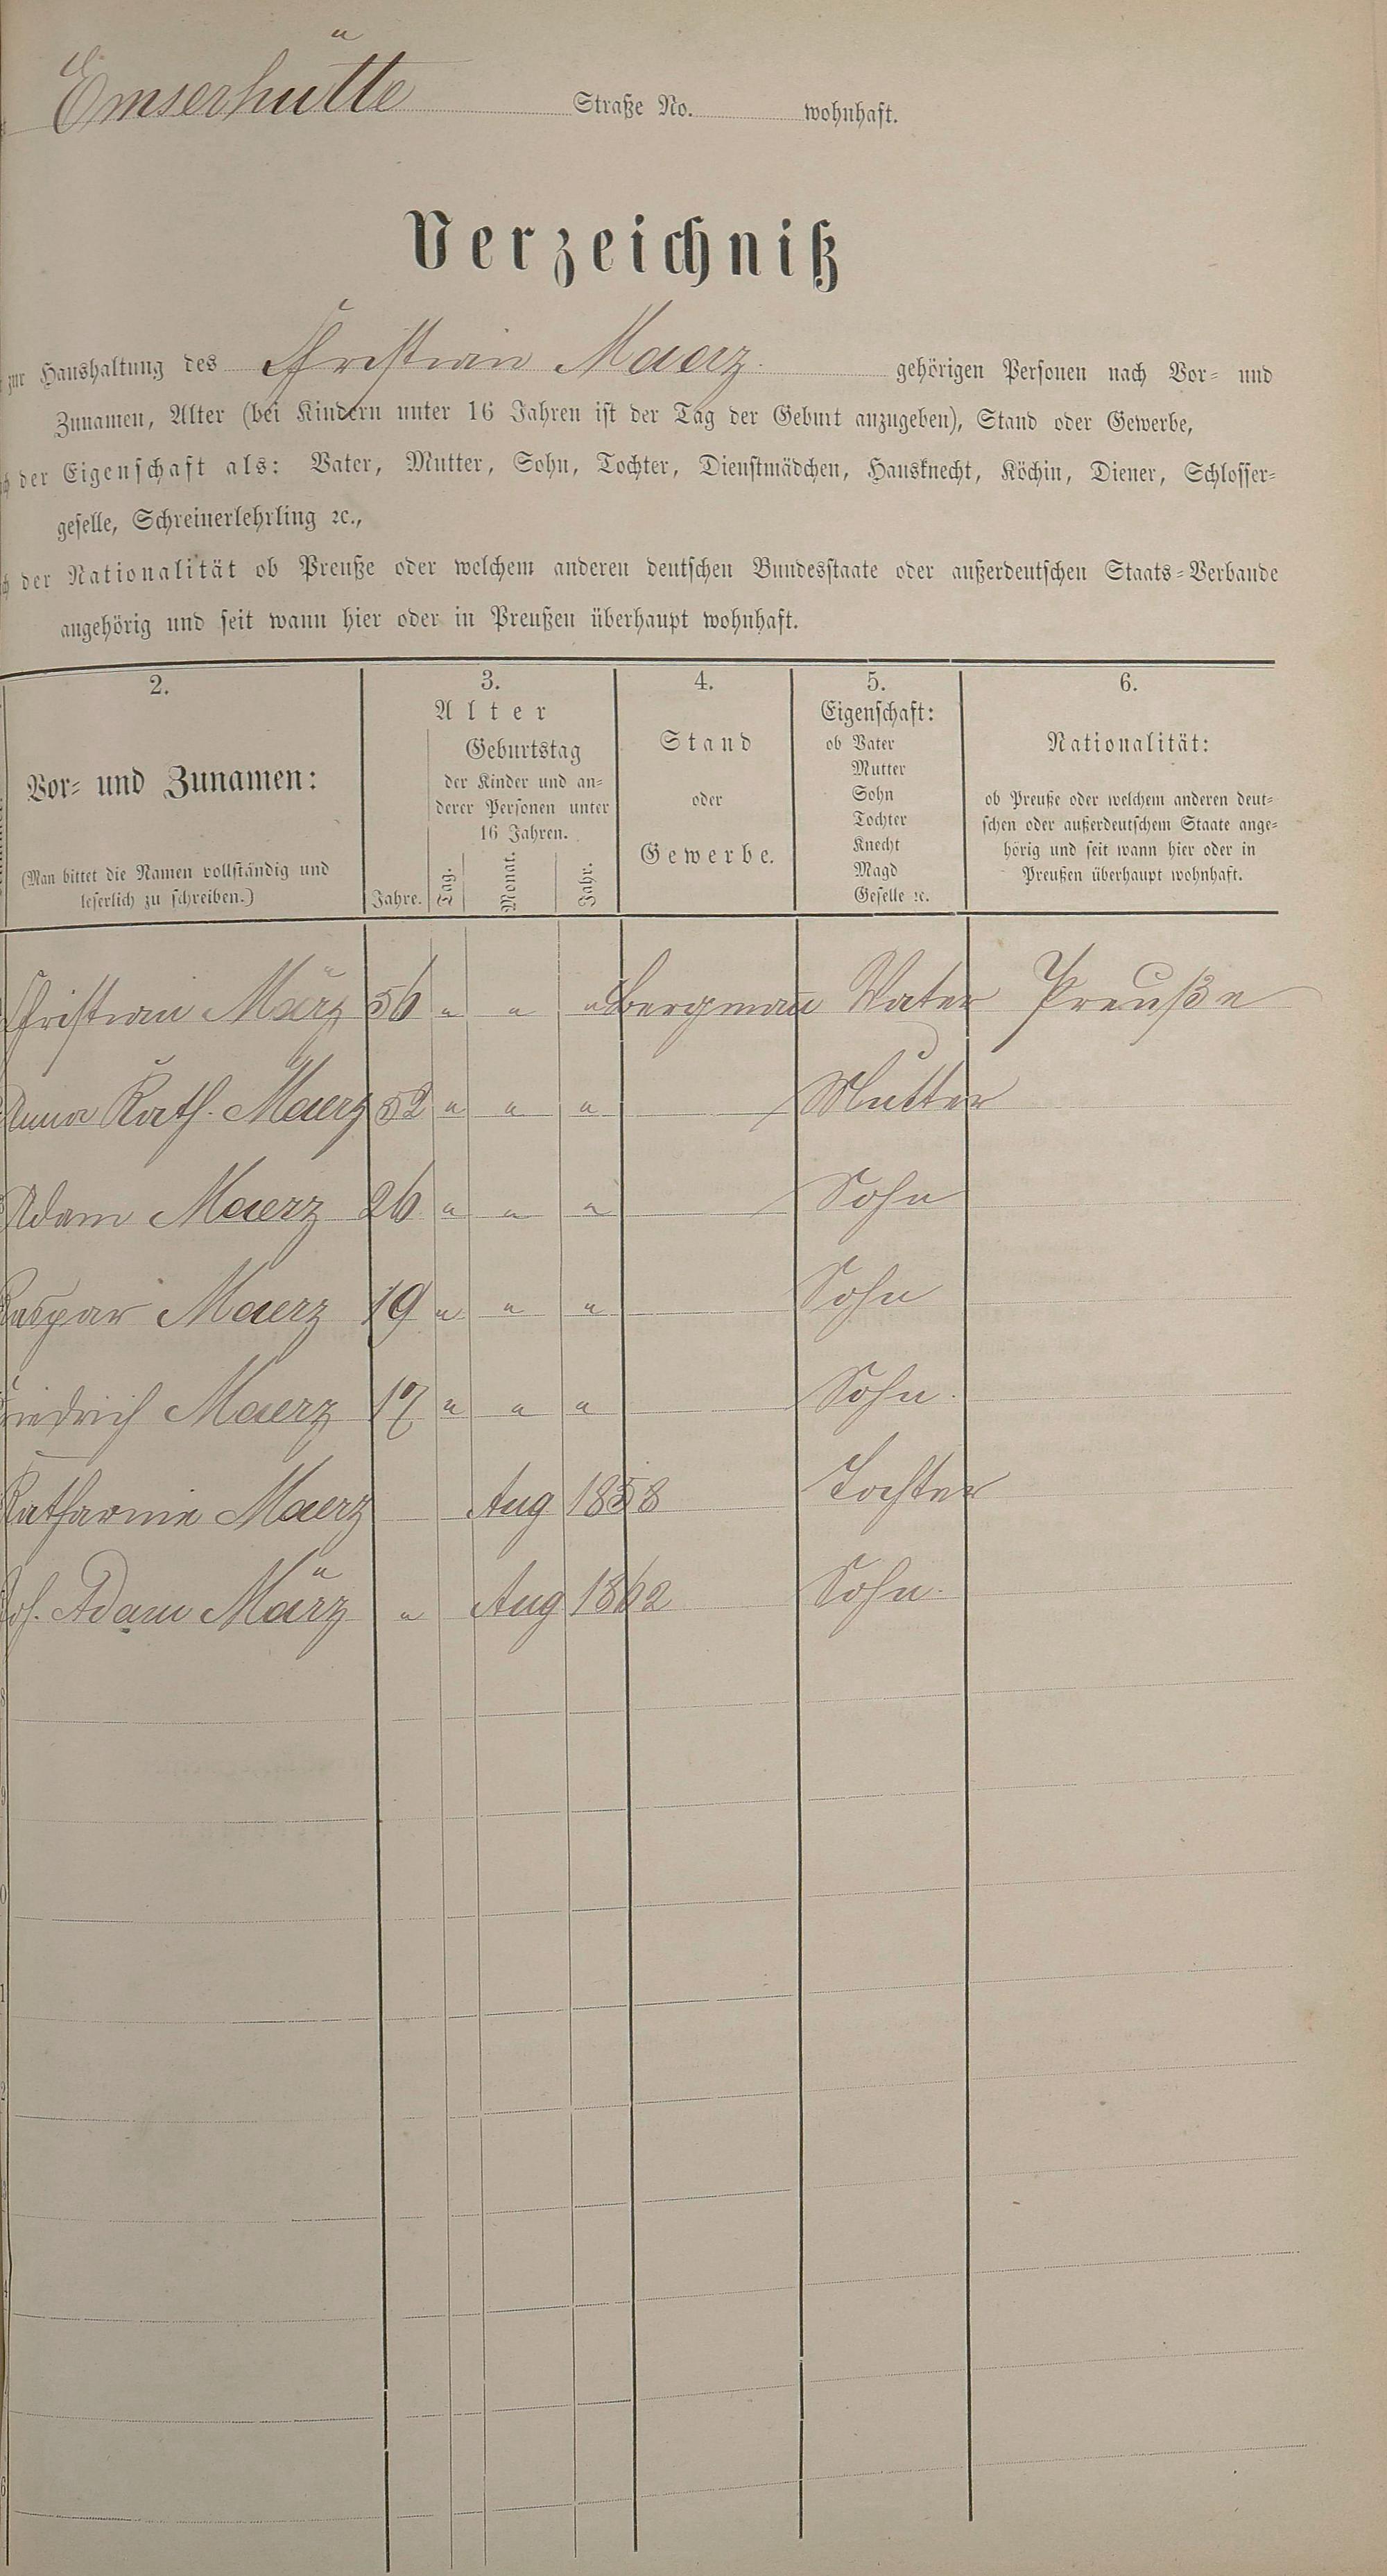 Emserhütte Straße No. wohnhaft.
Verzeichniß
zur Haushaltung des Christian Maerz. gehörigen Personen nach Vor- und
Zunamen, Alter (bei Kindern unter 16 Jahren ist der Tag der Geburt anzugeben), Stand oder Gewerbe,
der Eigenschaft als: Vater, Mutter, Sohn, Tochter, Dienstmädchen, Hausknecht, Köchin, Diener, Schlosser-
geselle, Schreinerlehrling ꝛc.,
der Nationalität ob Preuße oder welchem anderen deutschen Bundesstaate oder außerdeutschen Staats-Verbande
angehörig und seit wann hier oder in Preußen überhaupt wohnhaft.
2. 3. 4. 5. 6.
Alter
Geburtstag
der Kinder und an-
derer Personen unter
16 Jahren.
Vor- und Zunamen:
(Man bittet die Namen vollständig und
leserlich zu schreiben.)
Jahre. Tag. Monat. Jahr.
Stand
oder
Gewerbe.
Eigenschaft:
ob Vater
Mutter
Sohn
Tochter
Knecht
Magd
Geselle ꝛc.
Nationalität:
ob Preuße oder welchem anderen deut-
schen oder außerdeutschem Staate ange-
hörig und seit wann hier oder in
Preußen überhaupt wohnhaft.
Christian März 56 " " " Bergmañ Vater Preuße
Anna Kath. Maerz 52 " " " Mutter
Adam Maerz 26 " " " Sohn
Caspar Maerz 19 " " " Sohn
Friedrich Maerz 17 " " " Sohn.
Katharine Maerz Aug 1858 Tochter
Joh. Adam März " Aug 1862 Sohn.
8
9
0
1
2
3
4
6